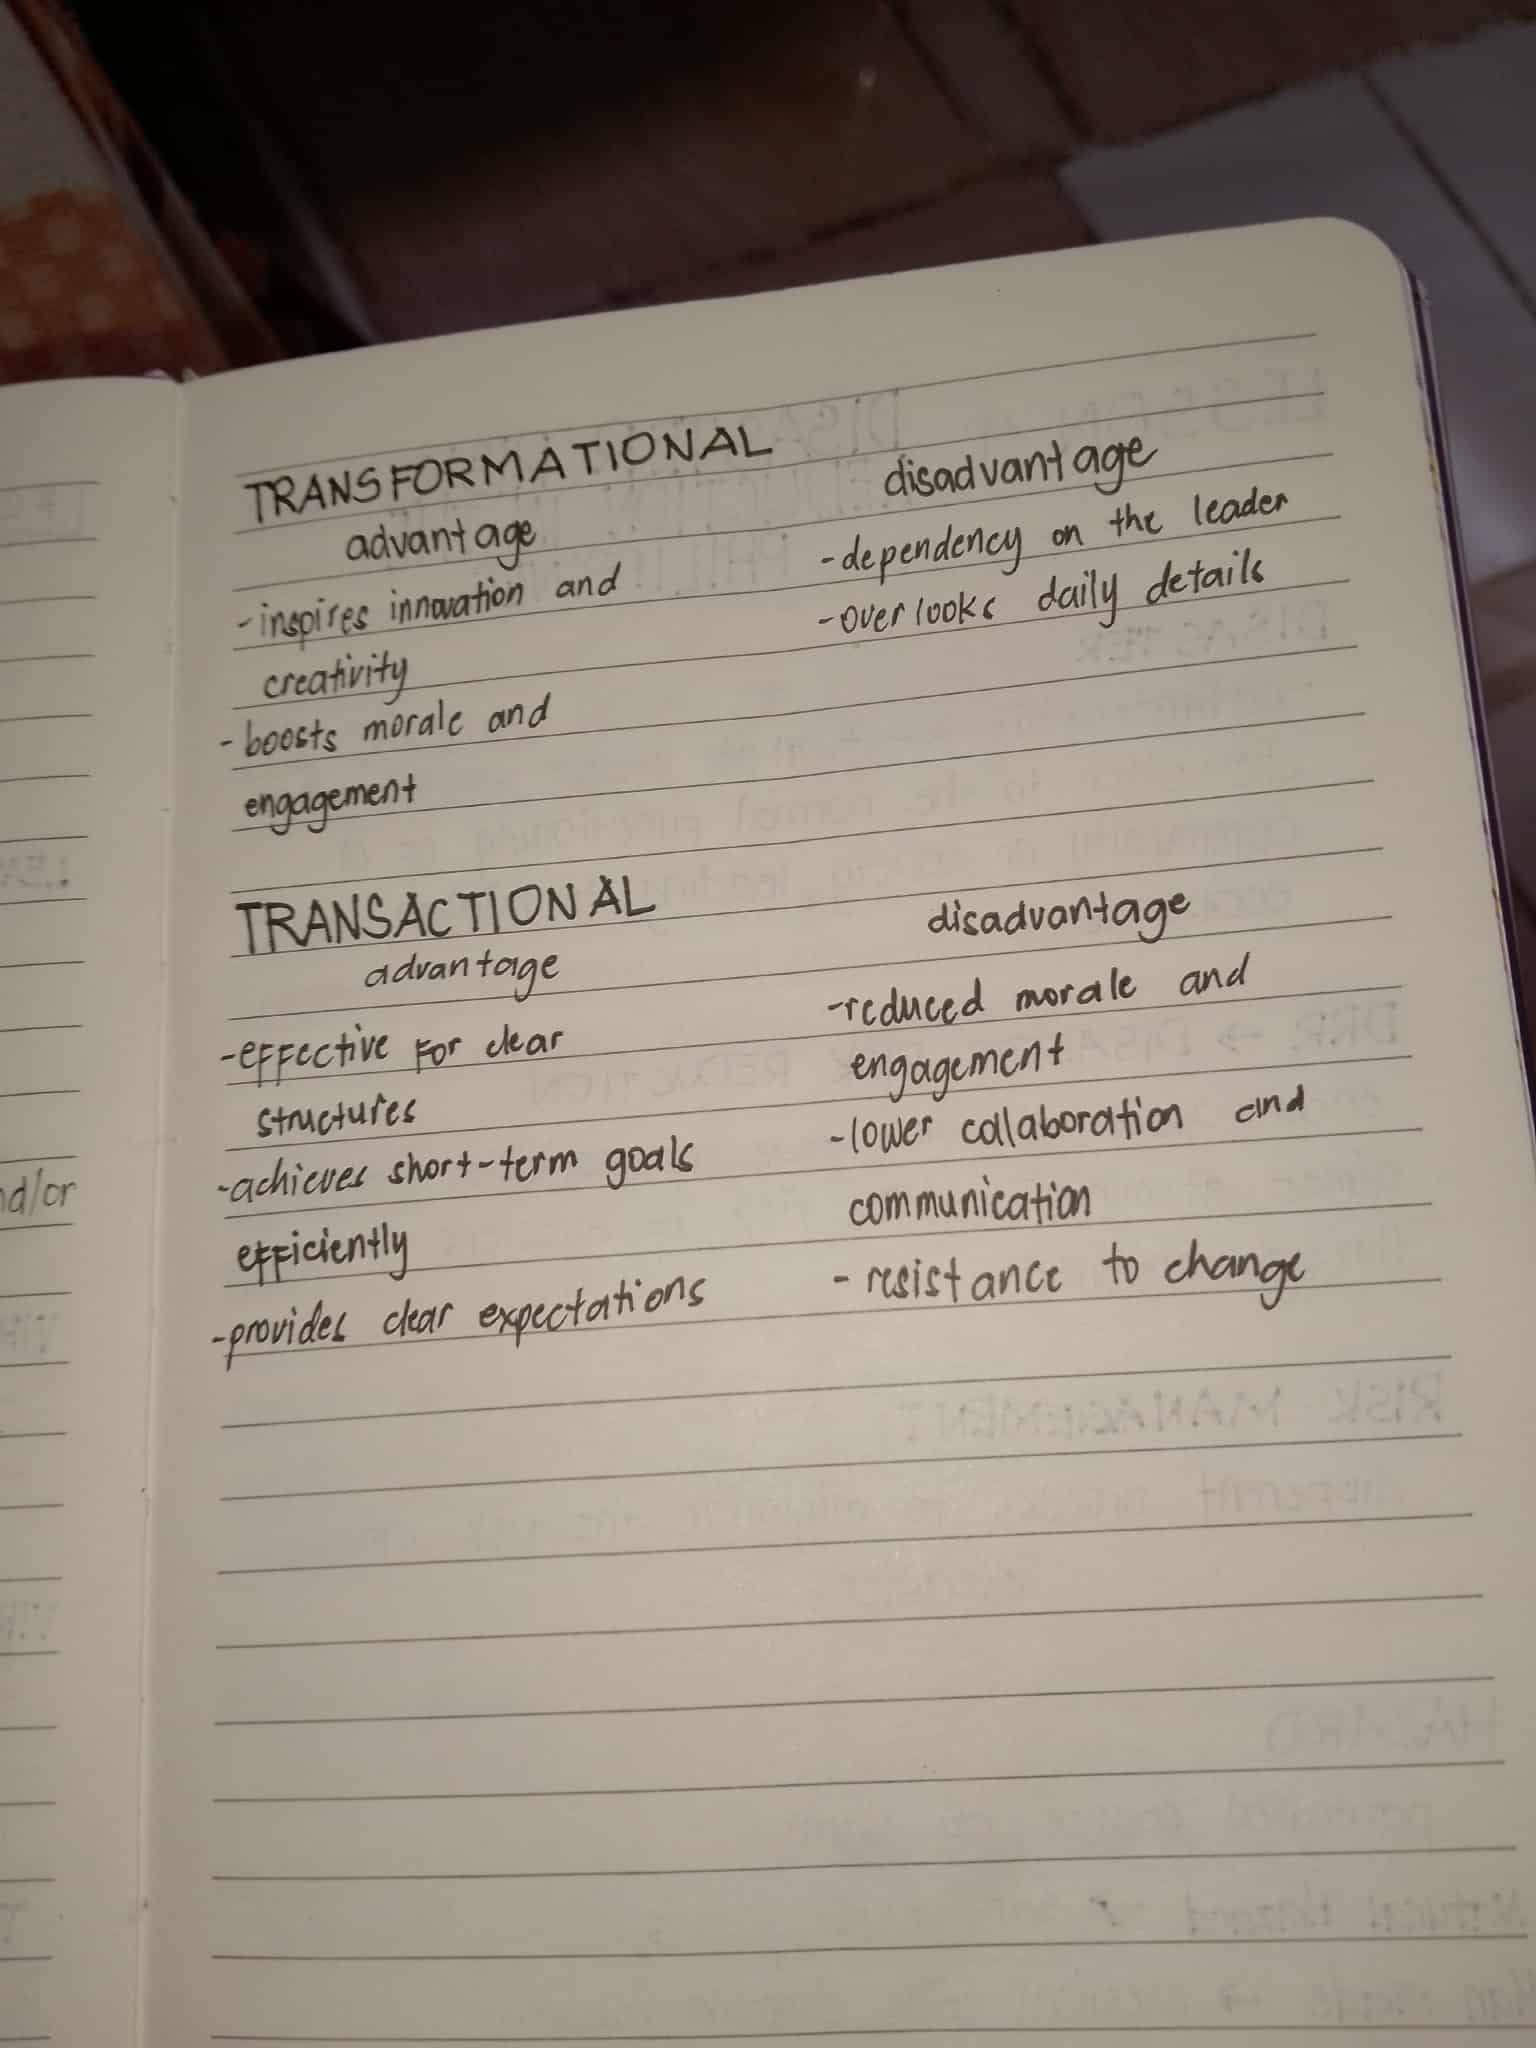 TRANSFORMATIONAL
advantage
-inspires innovation and
creativity
-boosts morale and
engagement
disadvantage
-dependency on the leader
-overlooks daily details
TRANSACTIONAL
advantage
-effective for clear
structures
-achieves short-term goals
efficiently
-provides clear expectations
disadvantage
-reduced morale and
engagement
-lower collaboration and
communication
- resistance to change
nd/or